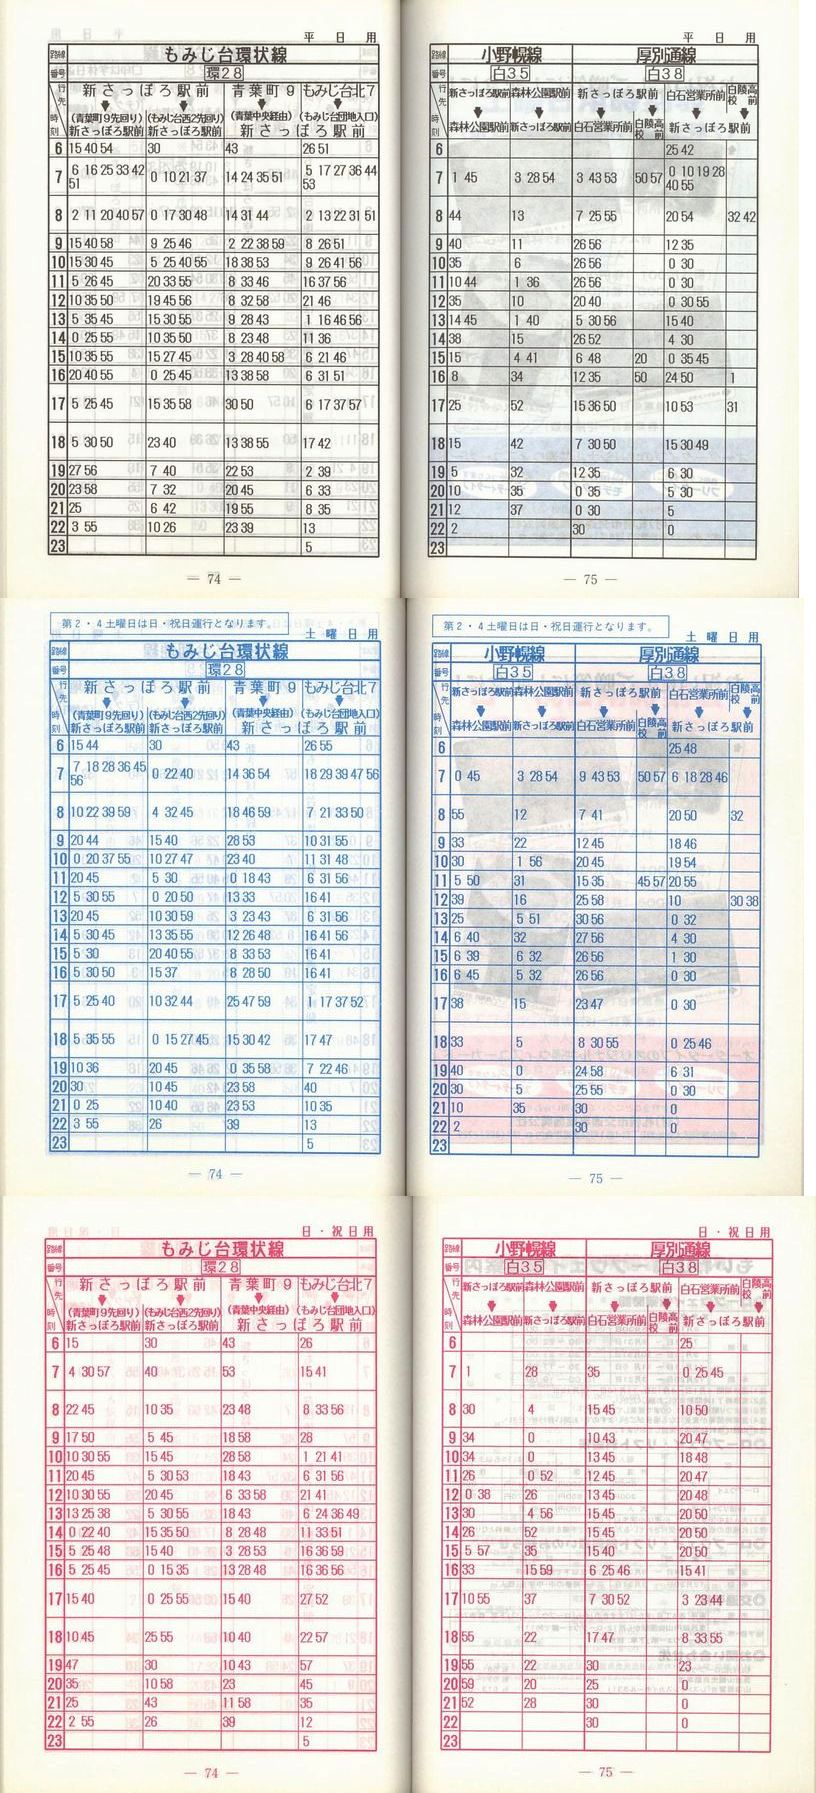 平日用
もみじ台環状線
番号 環28
行先 新さっぽろ駅前 青葉町9 もみじ台北7
(青葉町9先回り) (もみじ台西2先回り) (青葉中央経由) (もみじ台団地入口)
時刻 新さっぽろ駅前 新さっぽろ駅前 新さっぽろ駅前
6 15 40 54 30 43 26 51
7 6 16 25 33 42 0 10 21 37 14 24 35 51 5 17 27 36 44
51 53
8 2 11 20 40 57 0 17 30 48 14 31 44 2 13 22 31 51
9 15 40 58 9 25 46 2 22 38 59 8 26 51
10 15 30 45 5 25 40 55 18 38 53 9 26 41 56
11 5 26 45 20 33 55 8 33 46 16 37 56
12 10 35 50 19 45 56 8 32 58 21 46
13 5 35 45 15 30 55 9 28 43 1 16 46 56
14 0 25 55 10 35 50 8 23 48 11 36
15 10 35 55 15 27 45 3 28 40 58 6 21 46
16 20 40 55 0 25 45 13 38 58 6 31 51
17 5 25 45 15 35 58 30 50 6 17 37 57
18 5 30 50 23 40 13 38 55 17 42
19 27 56 7 40 22 53 2 39
20 23 58 7 32 20 45 6 33
21 25 6 42 19 55 8 35
22 3 55 10 26 23 39 13
23 5
— 74 —
平日用
小野幌線 厚別通線
番号 白35 白38
行先 新さっぽろ駅前 森林公園駅前 新さっぽろ駅前 白石営業所前 白陵高校前
時刻 森林公園駅前 新さっぽろ駅前 白石営業所前 白陵高校前 新さっぽろ駅前
6 25 42
7 1 45 3 28 54 3 43 53 50 57 0 10 19 28
40 55
8 44 13 7 25 55 20 54 32 42
9 40 11 26 56 12 35
10 35 6 26 56 0 30
11 10 44 1 36 26 56 0 30
12 35 10 20 40 0 30 55
13 14 45 1 40 5 30 56 15 40
14 38 15 26 52 4 30
15 15 4 41 6 48 20 0 35 45
16 8 34 12 35 50 24 50 1
17 25 52 15 36 50 10 53 31
18 15 42 7 30 50 15 30 49
19 5 32 12 35 6 30
20 10 35 0 35 5 30
21 12 37 0 30 5
22 2 30 0
23
— 75 —
第2・4土曜日は日・祝日運行となります。
土曜日用
もみじ台環状線
番号 環28
行先 新さっぽろ駅前 青葉町9 もみじ台北7
(青葉町9先回り) (もみじ台西2先回り) (青葉中央経由) (もみじ台団地入口)
時刻 新さっぽろ駅前 新さっぽろ駅前 新さっぽろ駅前
6 15 44 30 43 26 55
7 7 18 28 36 45 0 22 40 14 36 54 18 29 39 47 56
56
8 10 22 39 59 4 32 45 18 46 59 7 21 33 50
9 20 44 15 40 28 53 10 31 55
10 0 20 37 55 10 27 47 23 40 11 31 48
11 20 45 5 30 0 18 43 6 31 56
12 5 30 55 0 20 50 13 33 16 41
13 20 45 10 30 59 3 23 43 6 31 56
14 5 30 45 13 35 55 12 26 48 16 41 56
15 5 30 20 40 55 8 33 53 16 41
16 5 30 50 15 37 8 28 50 16 41
17 5 25 40 10 32 44 25 47 59 1 17 37 52
18 5 35 55 0 15 27 45 15 30 42 17 47
19 10 36 20 45 0 35 58 7 22 46
20 30 10 45 23 58 40
21 0 25 10 40 23 53 10 35
22 3 55 26 39 13
23 5
— 74 —
第2・4土曜日は日・祝日運行となります。
土曜日用
小野幌線 厚別通線
番号 白35 白38
行先 新さっぽろ駅前 森林公園駅前 新さっぽろ駅前 白石営業所前 白陵高校前
時刻 森林公園駅前 新さっぽろ駅前 白石営業所前 白陵高校前 新さっぽろ駅前
6 25 48
7 0 45 3 28 54 9 43 53 50 57 6 18 28 46
8 55 12 7 41 20 50 32
9 33 22 12 45 18 46
10 30 1 56 20 45 19 54
11 5 50 31 15 35 45 57 20 55
12 39 16 25 58 10 30 38
13 25 5 51 30 56 0 32
14 6 40 32 27 56 4 30
15 6 39 6 32 26 56 1 30
16 6 45 5 32 26 56 0 30
17 38 15 23 47 0 30
18 33 5 8 30 55 0 25 46
19 40 0 24 58 6 31
20 30 5 25 55 0 30
21 10 35 30 0
22 2 30 0
23
— 75 —
日・祝日用
もみじ台環状線
番号 環28
行先 新さっぽろ駅前 青葉町9 もみじ台北7
(青葉町9先回り) (もみじ台西2先回り) (青葉中央経由) (もみじ台団地入口)
時刻 新さっぽろ駅前 新さっぽろ駅前 新さっぽろ駅前
6 15 30 43 26
7 4 30 57 40 53 15 41
8 22 45 10 35 23 48 8 33 56
9 17 50 5 45 18 58 28
10 10 30 55 15 45 28 58 1 21 41
11 20 45 5 30 53 18 43 6 31 56
12 10 30 55 20 45 6 33 58 21 41
13 13 25 38 5 30 55 18 43 6 24 36 49
14 0 22 40 15 35 50 8 28 48 11 33 51
15 5 25 48 15 40 3 28 53 16 36 59
16 5 25 45 0 15 35 13 28 48 16 36 56
17 15 40 0 25 55 15 40 27 52
18 10 45 25 55 10 40 22 57
19 47 30 10 43 57
20 35 10 58 23 45
21 25 43 11 58 35
22 2 55 26 39 12
23 5
— 74 —
日・祝日用
小野幌線 厚別通線
番号 白35 白38
行先 新さっぽろ駅前 森林公園駅前 新さっぽろ駅前 白石営業所前 白陵高校前
時刻 森林公園駅前 新さっぽろ駅前 白石営業所前 白陵高校前 新さっぽろ駅前
6 25
7 1 28 35 0 25 45
8 30 4 15 45 10 50
9 34 0 10 43 20 47
10 34 0 13 45 18 48
11 26 0 52 12 45 20 47
12 0 38 26 13 45 20 48
13 30 4 56 15 45 20 50
14 26 52 15 45 20 50
15 5 57 35 15 40 20 50
16 33 15 59 6 25 46 15 41
17 10 55 37 7 30 52 3 23 44
18 55 22 17 47 8 33 55
19 55 22 30 23
20 59 20 25 0
21 52 28 30 0
22 30 0
23
— 75 —